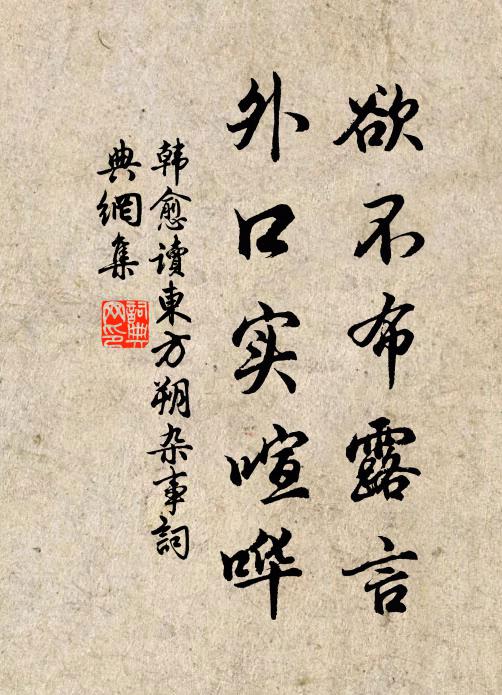 欲不布露言
外口实喧哗
韩愈讀東方朔杂事詞
典網集
詞典
网印